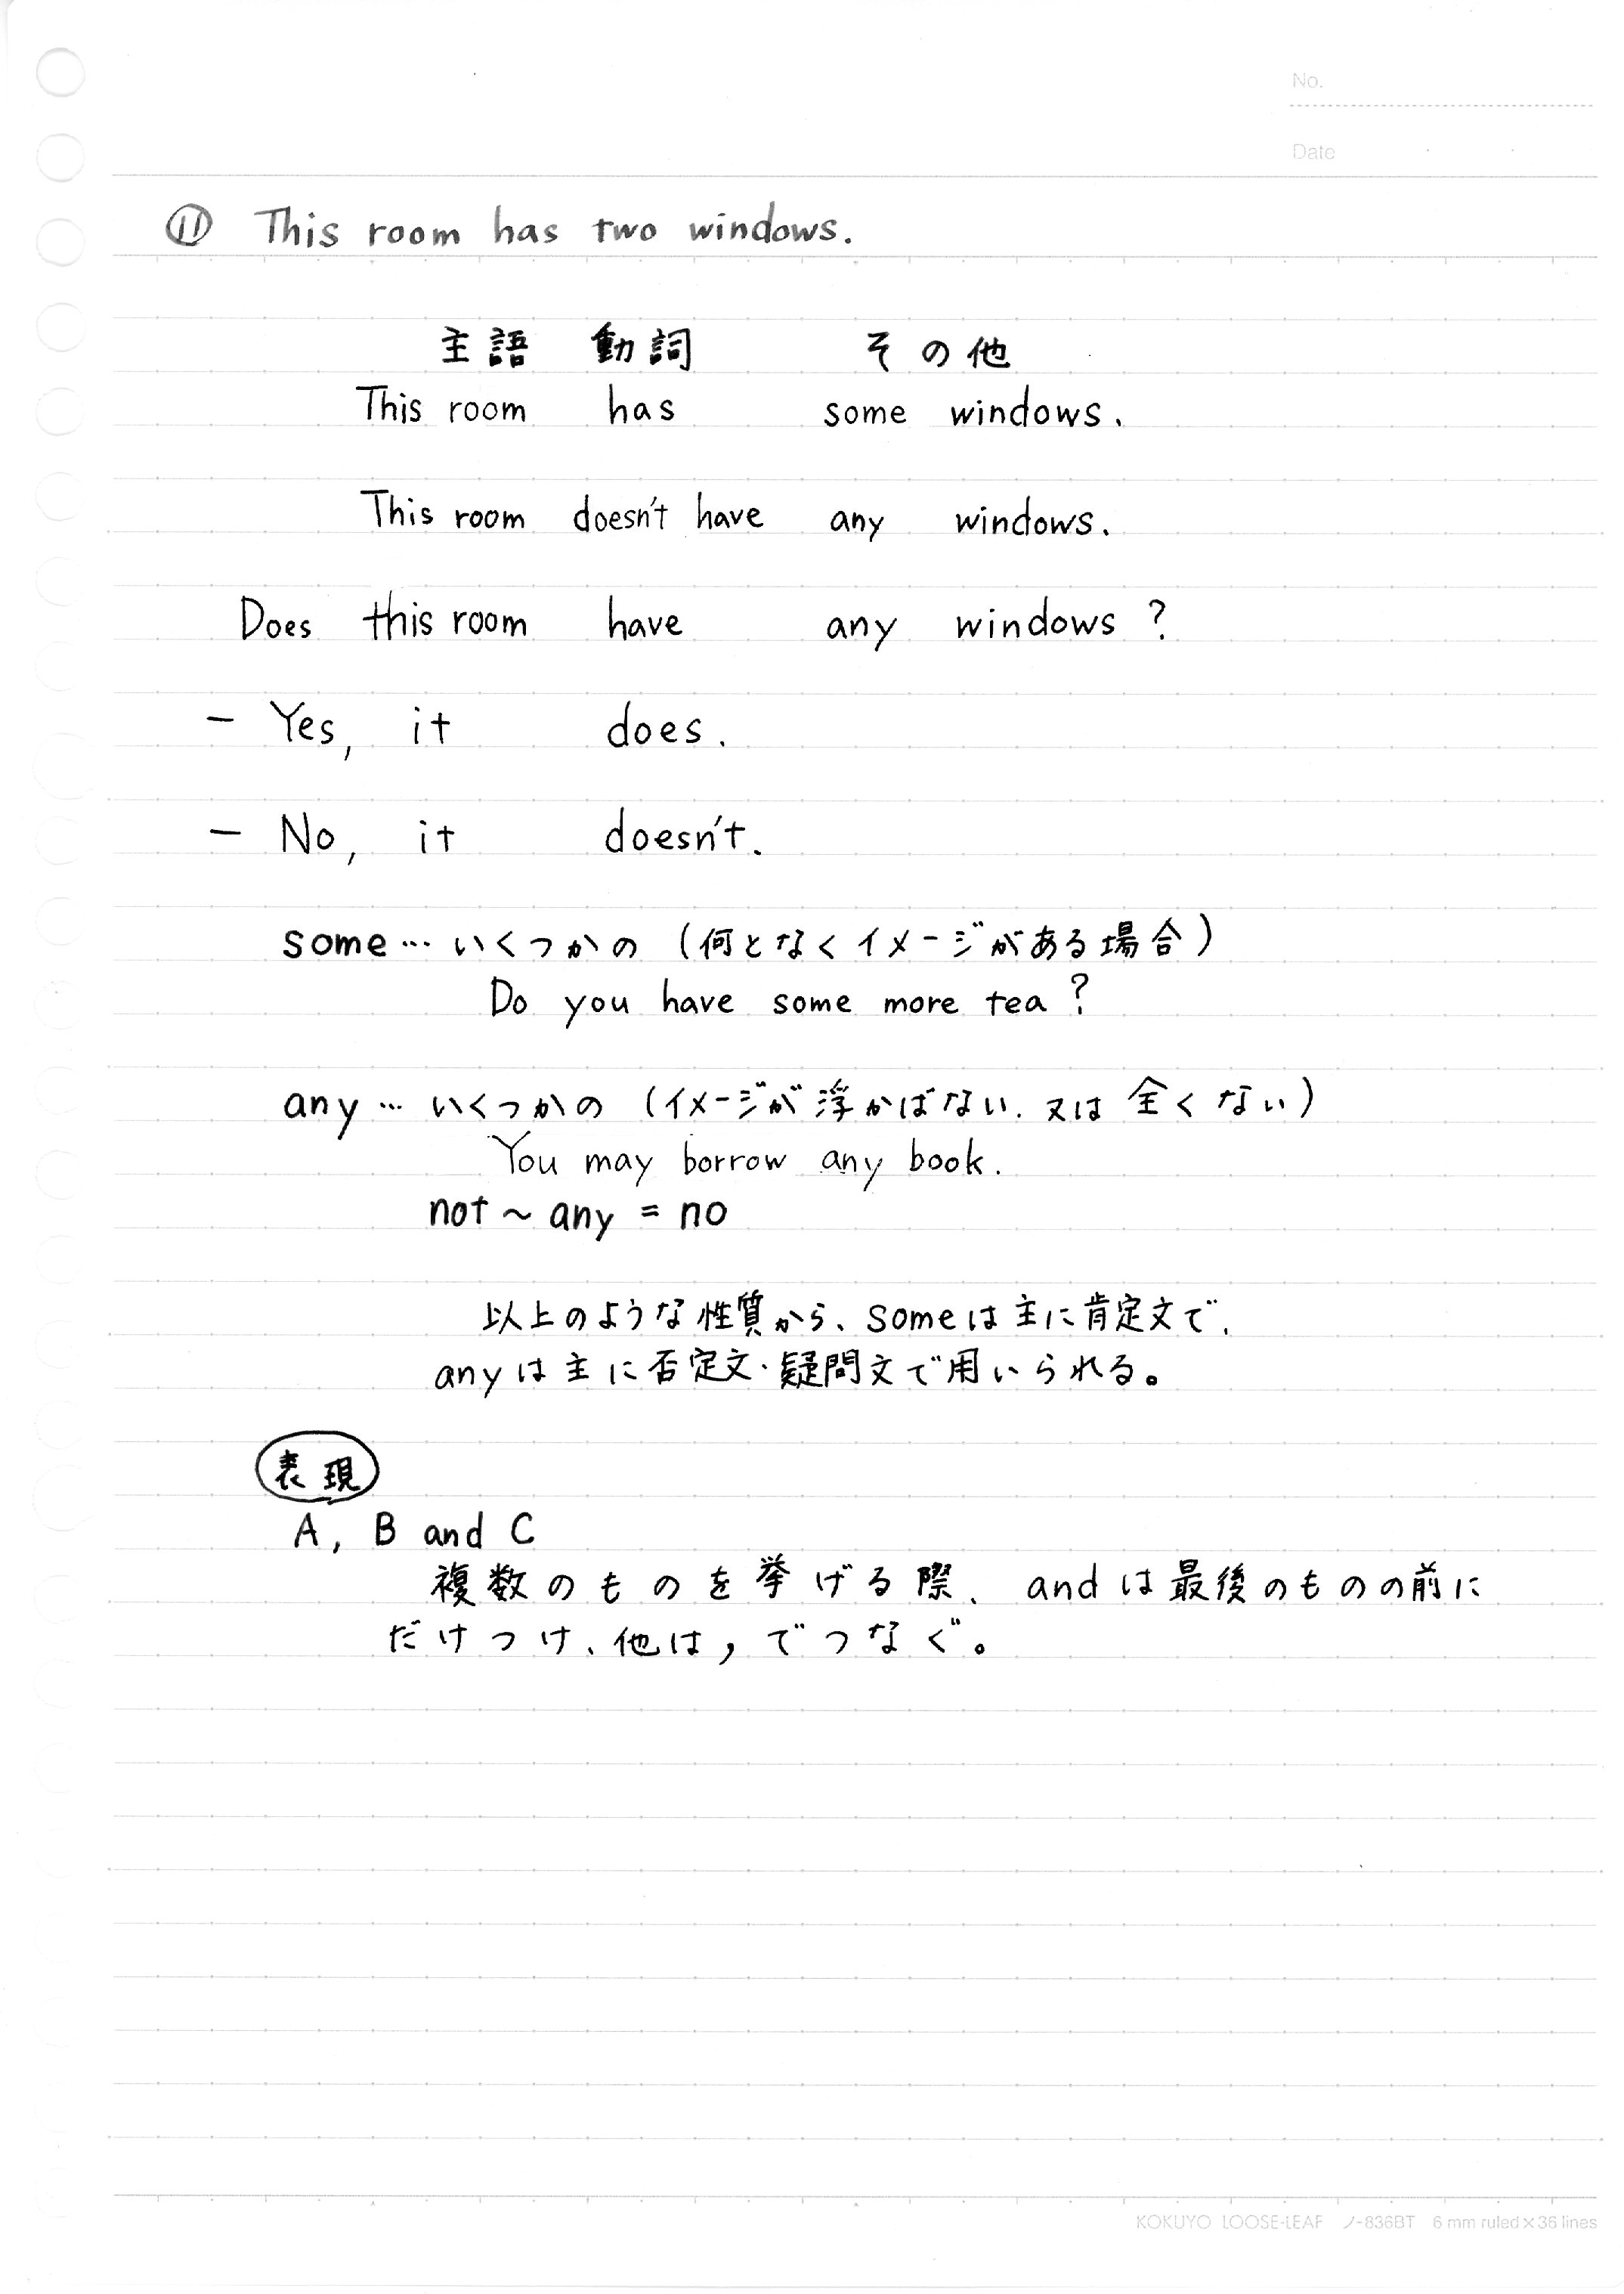 No.
Date
⑪ This room has two windows.
主語 動詞 その他
This room has some windows.
This room doesn't have any windows.
Does this room have any windows ?
- Yes, it does.
- No, it doesn't.
some… いくつかの (何となくイメージがある場合)
Do you have some more tea ?
any… いくつかの (イメージが浮かばない、又は全くない)
You may borrow any book.
not ~ any = no
以上のような性質から、someは主に肯定文で、
anyは主に否定文・疑問文で用いられる。
表現
A, B and C
複数のものを挙げる際、andは最後のものの前に
だけつけ、他は , でつなぐ。
KOKUYO LOOSE-LEAF ノ-836BT 6 mm ruled×36 lines